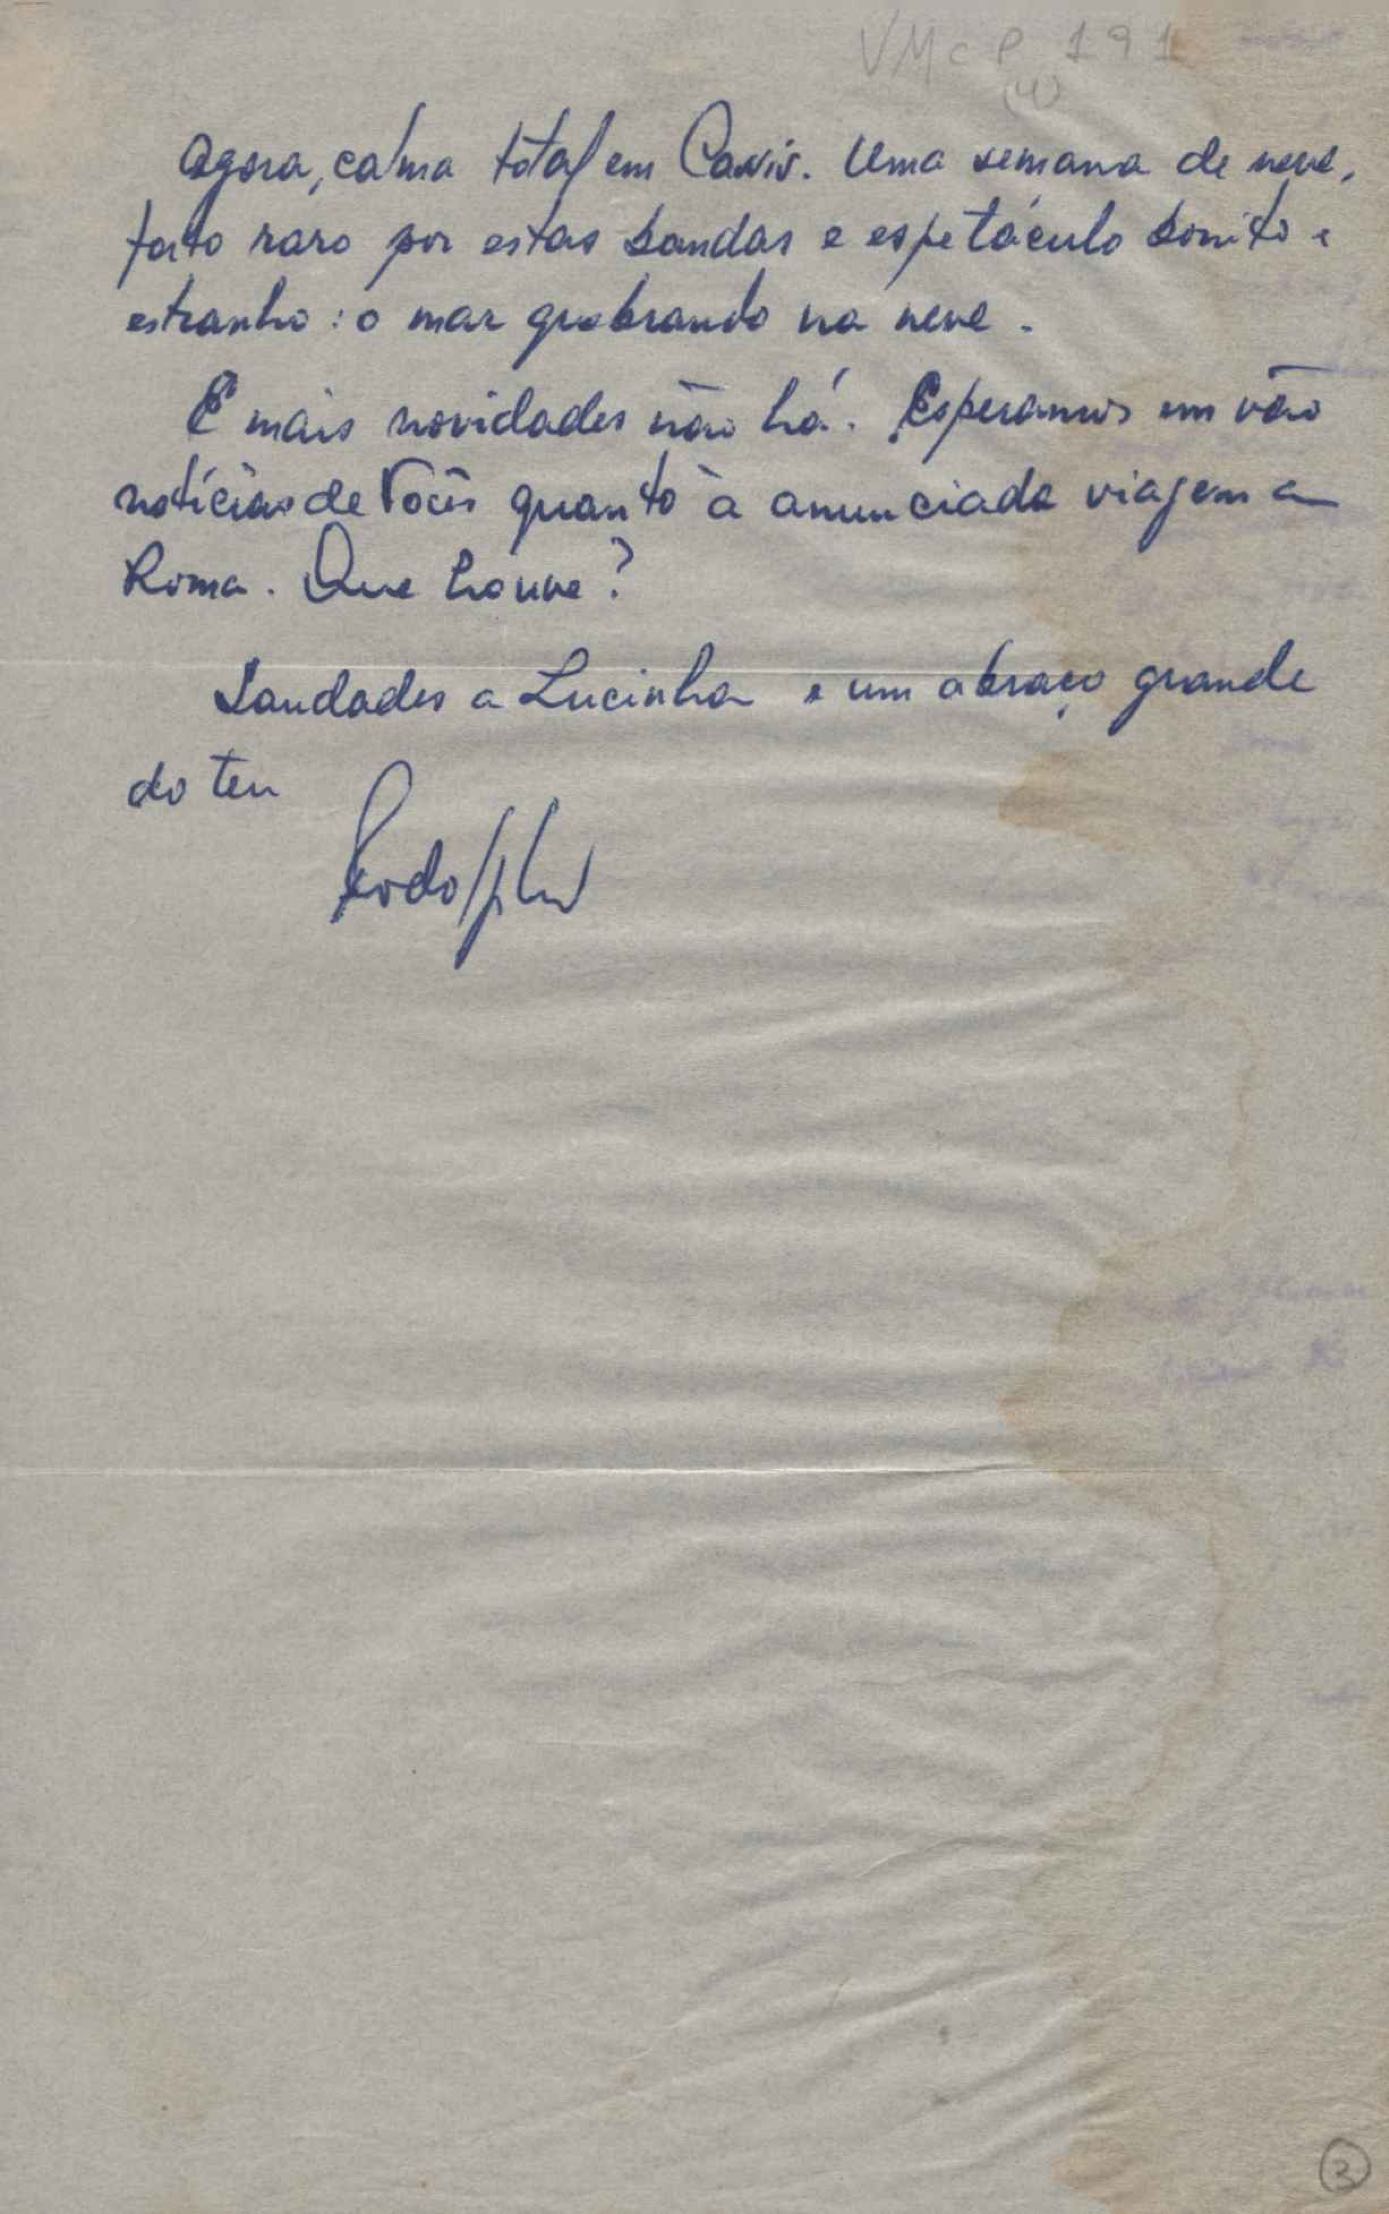 VMcP 191
(4)
Agora, calma total em Cassis. Uma semana de neve,
fato raro por estas bandas e espetáculo bonito e
estranho: o mar quebrando na neve.
E mais novidades não há. Esperamos em vão
notícias de Vocês quanto à anunciada viagem a
Roma. Que houve?
Saudades a Lucinha e um abraço grande
do teu
Rodolpho
3